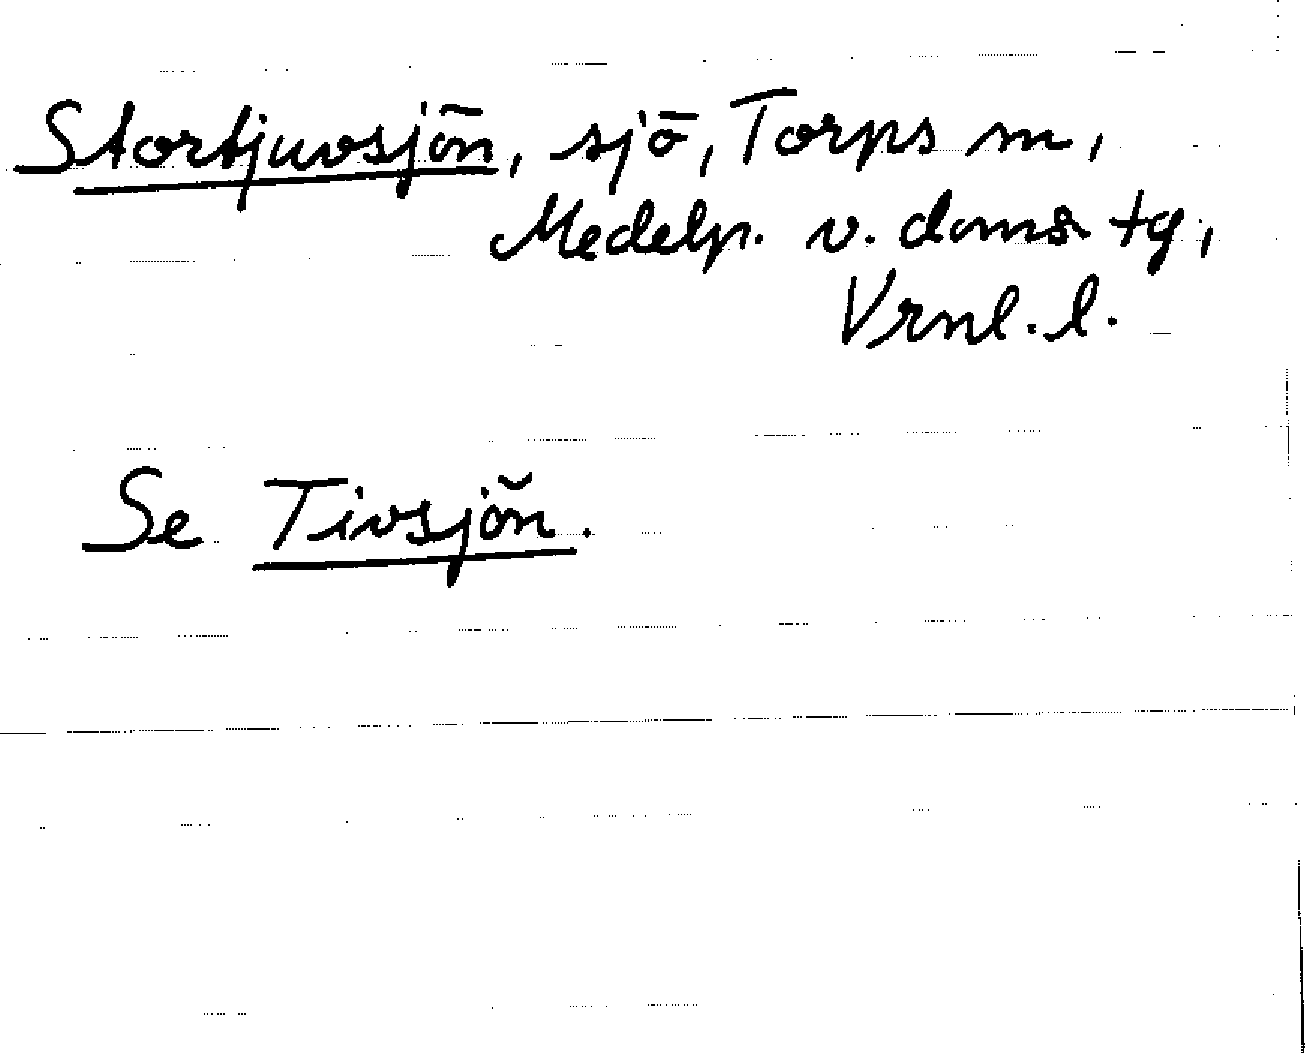 Stortjuvsjön, sjö, Torps sn,
Medelp. v. doms. tg,
Vrnl. l.
Se Tivsjön.